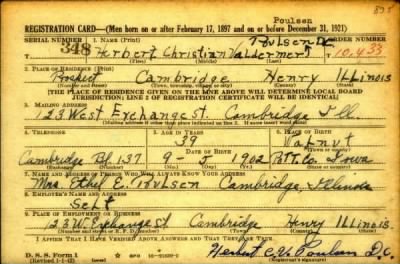 895
Poulsen
REGISTRATION CARD—(Men born on or after February 17, 1897 and on or before December 31, 1921)
SERIAL NUMBER 1. NAME (Print) ORDER NUMBER
348 Herbert Christian Valdermert Poulsen 10,433
2. PLACE OF RESIDENCE (Print)
Prospect Cambridge Henry Illinois
(Number and street) (Town, township, village, or city) (County) (State)
[THE PLACE OF RESIDENCE GIVEN ON THE LINE ABOVE WILL DETERMINE LOCAL BOARD
JURISDICTION; LINE 2 OF REGISTRATION CERTIFICATE WILL BE IDENTICAL]
3. MAILING ADDRESS
123 West Exchange St. Cambridge Ill.
[Mailing address if other than place indicated on line 2. If same insert word same]
4. TELEPHONE 5. AGE IN YEARS 6. PLACE OF BIRTH
39 Walnut
DATE OF BIRTH
Cambridge Bl 137 9 - 5 1902 Pott. Co. Iowa
7. NAME AND ADDRESS OF PERSON WHO WILL ALWAYS KNOW YOUR ADDRESS
Mrs. Ethel E. Poulsen Cambridge, Illinois
8. EMPLOYER'S NAME AND ADDRESS
Self
9. PLACE OF EMPLOYMENT OR BUSINESS
123 W. Exchange St Cambridge Henry Illinois.
I AFFIRM THAT I HAVE VERIFIED ABOVE ANSWERS AND THAT THEY ARE TRUE.
D. S. S. Form 1
(Revised 1-1-42) (over) Herbert C. V. Poulsen D.C.
(Registrant's signature)